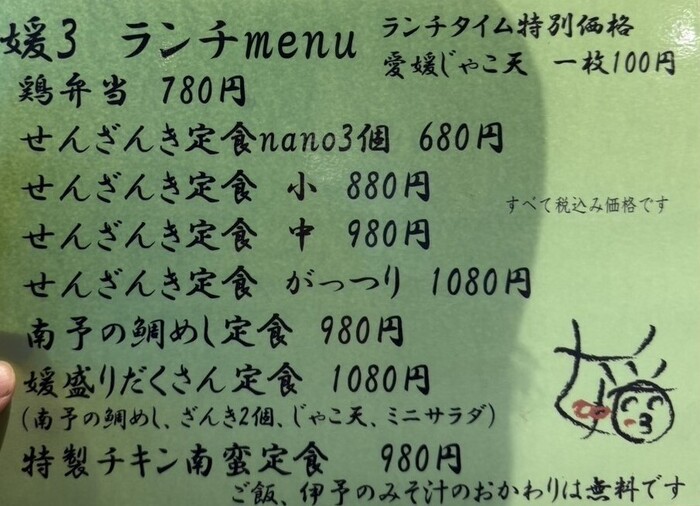 媛3 ランチmenu
ランチタイム特別価格
愛媛じゃこ天 一枚100円
鶏弁当 780円
せんざんき定食nano3個 680円
せんざんき定食 小 880円
すべて税込み価格です
せんざんき定食 中 980円
せんざんき定食 がっつり 1080円
南予の鯛めし定食 980円
媛盛りだくさん定食 1080円
(南予の鯛めし、ざんき2個、じゃこ天、ミニサラダ)
特製チキン南蛮定食 980円
ご飯、伊予のみそ汁のおかわりは無料です